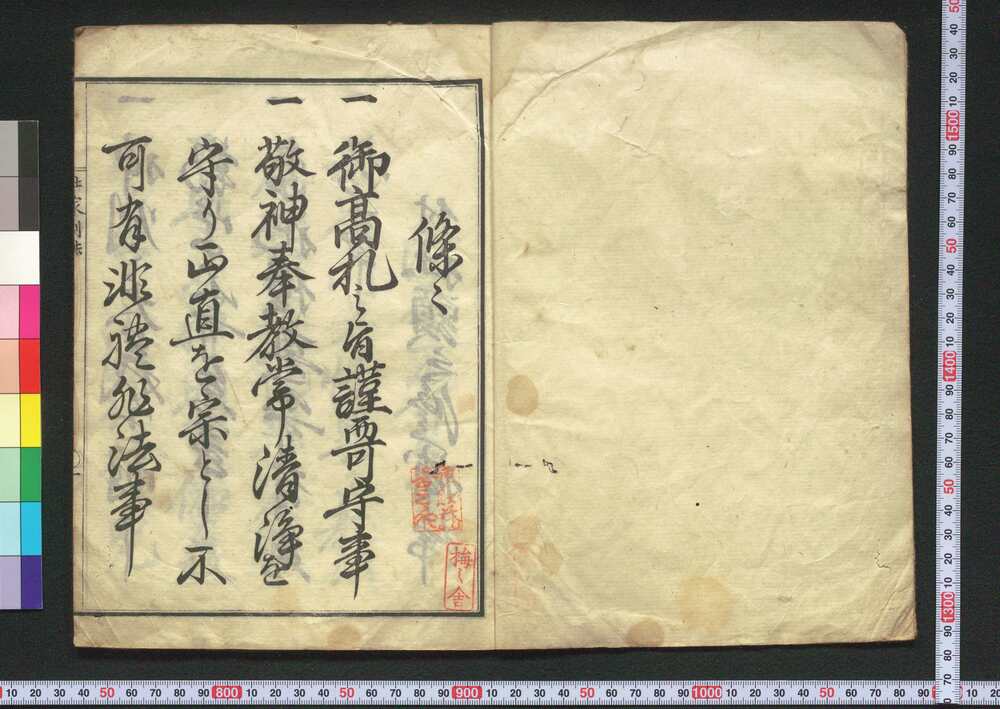 條々
一 御高札之旨謹可守事
一 敬神奉教常清浄を
守り正直を宗とし不
可有非禮非法事
梅之舎